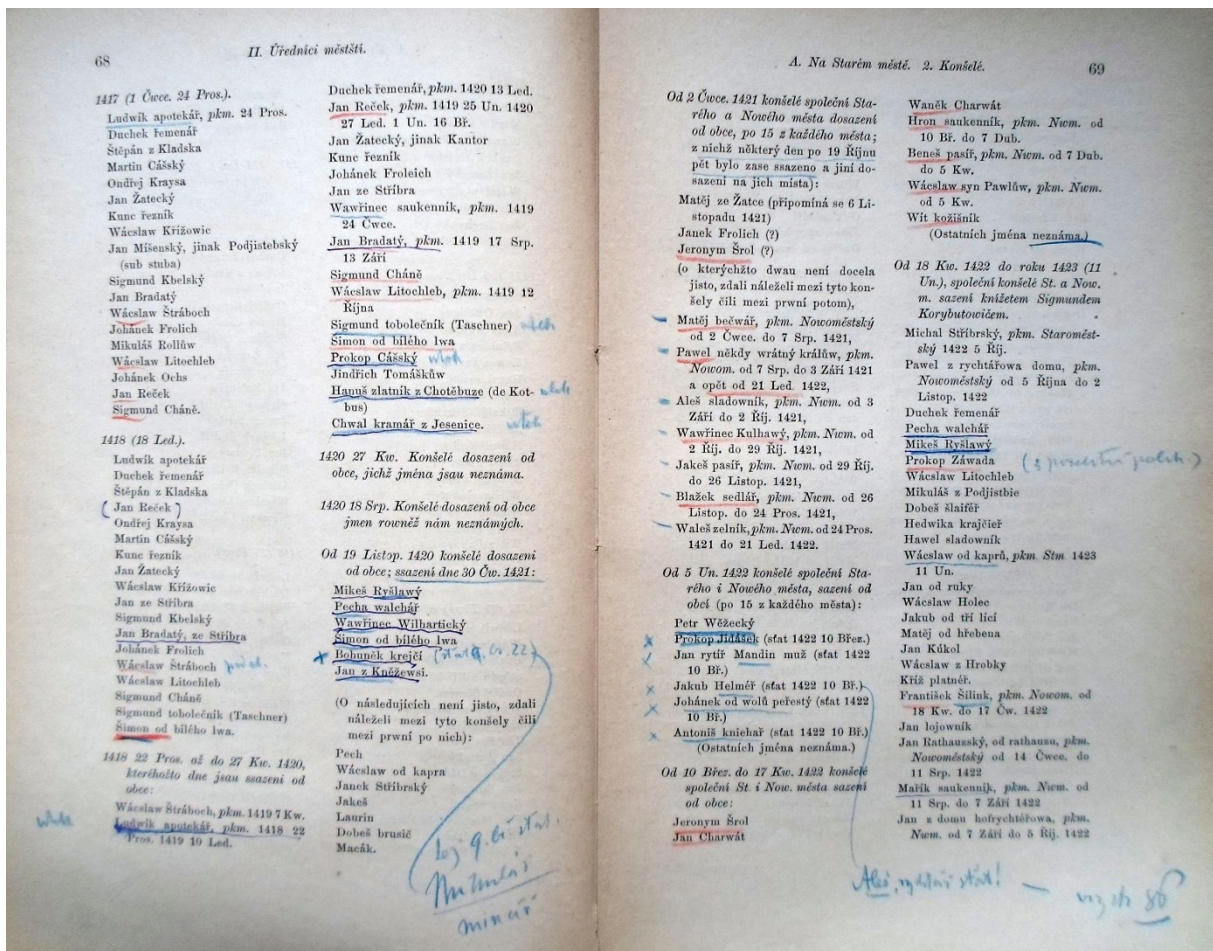 68
II. Úředníci městští.
1417 (1 Čwce. 24 Pros.).
Ludwík apotekář, pkm. 24 Pros.
Duchek řemenář
Štěpán z Kladska
Martin Cášský
Ondřej Kraysa
Jan Žatecký
Kunc řezník
Wácslaw Křížowic
Jan Míšenský, jinak Podjistebský
(sub stuba)
Sigmund Kbelský
Jan Bradatý
Wácslaw Štráboch
Johánek Frolich
Mikuláš Rollůw
Wácslaw Litochleb
Johánek Ochs
Jan Reček
Sigmund Cháně.
1418 (18 Led.).
Ludwík apotekář
Duchek řemenář
Štěpán z Kladska
(Jan Reček)
Ondřej Kraysa
Martin Cášský
Kunc řezník
Jan Žatecký
Wácslaw Křížowic
Jan ze Stříbra
Sigmund Kbelský
Jan Bradatý, ze Stříbra
Johánek Frolich
Wácslaw Štráboch
Wácslaw Litochleb
Sigmund Cháně
Sigmund tobolečník (Taschner)
Šimon od bílého lwa.
1418 22 Pros. až do 27 Kw. 1420,
kteréhožto dne jsau ssazeni od
obce:
Wácslaw Štráboch, pkm. 1419 7 Kw.
Ludwík apotekář, pkm. 1418 22
Pros. 1419 10 Led.
Duchek řemenář, pkm. 1420 13 Led.
Jan Reček, pkm. 1419 25 Un. 1420
27 Led. 1 Un. 16 Bř.
Jan Žatecký, jinak Kantor
Kunc řezník
Johánek Froleich
Jan ze Stříbra
Wawřinec saukenník, pkm. 1419
24 Čwce.
Jan Bradatý, pkm. 1419 17 Srp.
13 Září
Sigmund Cháně
Wácslaw Litochleb, pkm. 1419 12
Října
Sigmund tobolečník (Taschner) utek
Šimon od bílého lwa
Prokop Cášský utek
Jindřich Tomáškůw
Hanuš zlatník z Chotěbuze (de Kot- utek
bus)
Chwal kramář z Jesenice. utek
1420 27 Kw. Konšelé dosazeni od
obce, jichž jména jsau neznáma.
1420 18 Srp. Konšelé dosazeni od obce
jmen rowněž nám neznámých.
Od 19 Listop. 1420 konšelé dosazeni
od obce; ssazeni dne 30 Čw. 1421:
Mikeš Ryšlawý
Pecha walchář
Wawřinec Wilhartický
Šimon od bílého lwa
Bohuněk krejčí
Jan z Kněžewsi.
(O následujících není jisto, zdali
náleželi mezi tyto konšely čili
mezi prwní po nich):
Pech
Wácslaw od kapra
Janek Stříbrský
Jakeš
Laurin
Dobeš brusič
Macák.
Mikuláš
mincíř
A. Na Starém městě. 2. Konšelé.
69
Od 2 Čwce. 1421 konšelé společní Sta-
rého a Nowého města dosazeni
od obce, po 15 z každého města;
z nichž některý den po 19 Říjnu
pět bylo zase ssazeno a jiní do-
sazeni na jich místa):
Matěj ze Žatce (připomíná se 6 Li-
stopadu 1421)
Janek Frolich (?)
Jeronym Šrol (?)
(o kterýchžto dwau není docela
jisto, zdali náleželi mezi tyto kon-
šely čili mezi prwní potom),
Matěj bečwář, pkm. Nowoměstský
od 2 Čwce. do 7 Srp. 1421,
Pawel někdy wrátný králůw, pkm.
Nowom. od 7 Srp. do 3 Září 1421
a opět od 21 Led. 1422,
Aleš sladowník, pkm. Nwm. od 3
Září do 2 Říj. 1421,
Wawřinec Kulhawý, pkm. Nwm. od
2 Říj. do 29 Říj. 1421,
Jakeš pasíř, pkm. Nwm. od 29 Říj.
do 26 Listop. 1421,
Blažek sedlář, pkm. Nwm. od 26
Listop. do 24 Pros. 1421,
Waleš zelník, pkm. Nwm. od 24 Pros.
1421 do 21 Led. 1422.
Od 5 Un. 1422 konšelé společní Sta-
rého i Nowého města, sazení od
obcí (po 15 z každého města):
Petr Wěžecký
Prokop Jidášek (sťat 1422 10 Břez.)
Jan rytíř Mandin muž (sťat 1422
10 Bř.)
Jakub Helméř (sťat 1422 10 Bř.)
Johánek od wolů peřestý (sťat 1422
10 Bř.)
Antoniš kniehař (sťat 1422 10 Bř.)
(Ostatních jména neznáma.)
Od 10 Břez. do 17 Kw. 1422 konšelé
společní St. i Now. města sazeni
od obce:
Jeronym Šrol
Jan Charwát
Waněk Charwát
Hron saukenník, pkm. Nwm. od
10 Bř. do 7 Dub.
Beneš pasíř, pkm. Nwm. od 7 Dub.
do 5 Kw.
Wácslaw syn Pawlůw, pkm. Nwm.
od 5 Kw.
Wít kožišník
(Ostatních jména neznáma.)
Od 18 Kw. 1422 do roku 1423 (11
Un.), společní konšelé St. a Now.
m. sazení knížetem Sigmundem
Korybutowičem.
Michal Stříbrský, pkm. Staroměst-
ský 1422 5 Říj.
Pawel z rychtářowa domu, pkm.
Nowoměstský od 5 Října do 2
Listop. 1422
Duchek řemenář
Pecha walchář
Mikeš Ryšlawý
Prokop Záwada
Wácslaw Litochleb
Mikuláš z Podjistbie
Dobeš šlaiféř
Hedwika krajčieř
Hawel sladowník
Wácslaw od kaprů, pkm. Stm 1423
11 Un.
Jan od ruky
Wácslaw Holec
Jakub od tří lící
Matěj od hřebena
Jan Kúkol
Wácslaw z Hrobky
Kříž platnéř.
František Šilink, pkm. Nowom. od
18 Kw. do 17 Čw. 1422
Jan lojowník
Jan Rathauzský, od rathauzu, pkm.
Nowoměstský od 14 Čwce. do
11 Srp. 1422
Mařík saukenník, pkm. Nwm. od
11 Srp. do 7 Září 1422
Jan z domu hofrychtéřowa, pkm.
Nwm. od 7 Září do 5 Říj. 1422